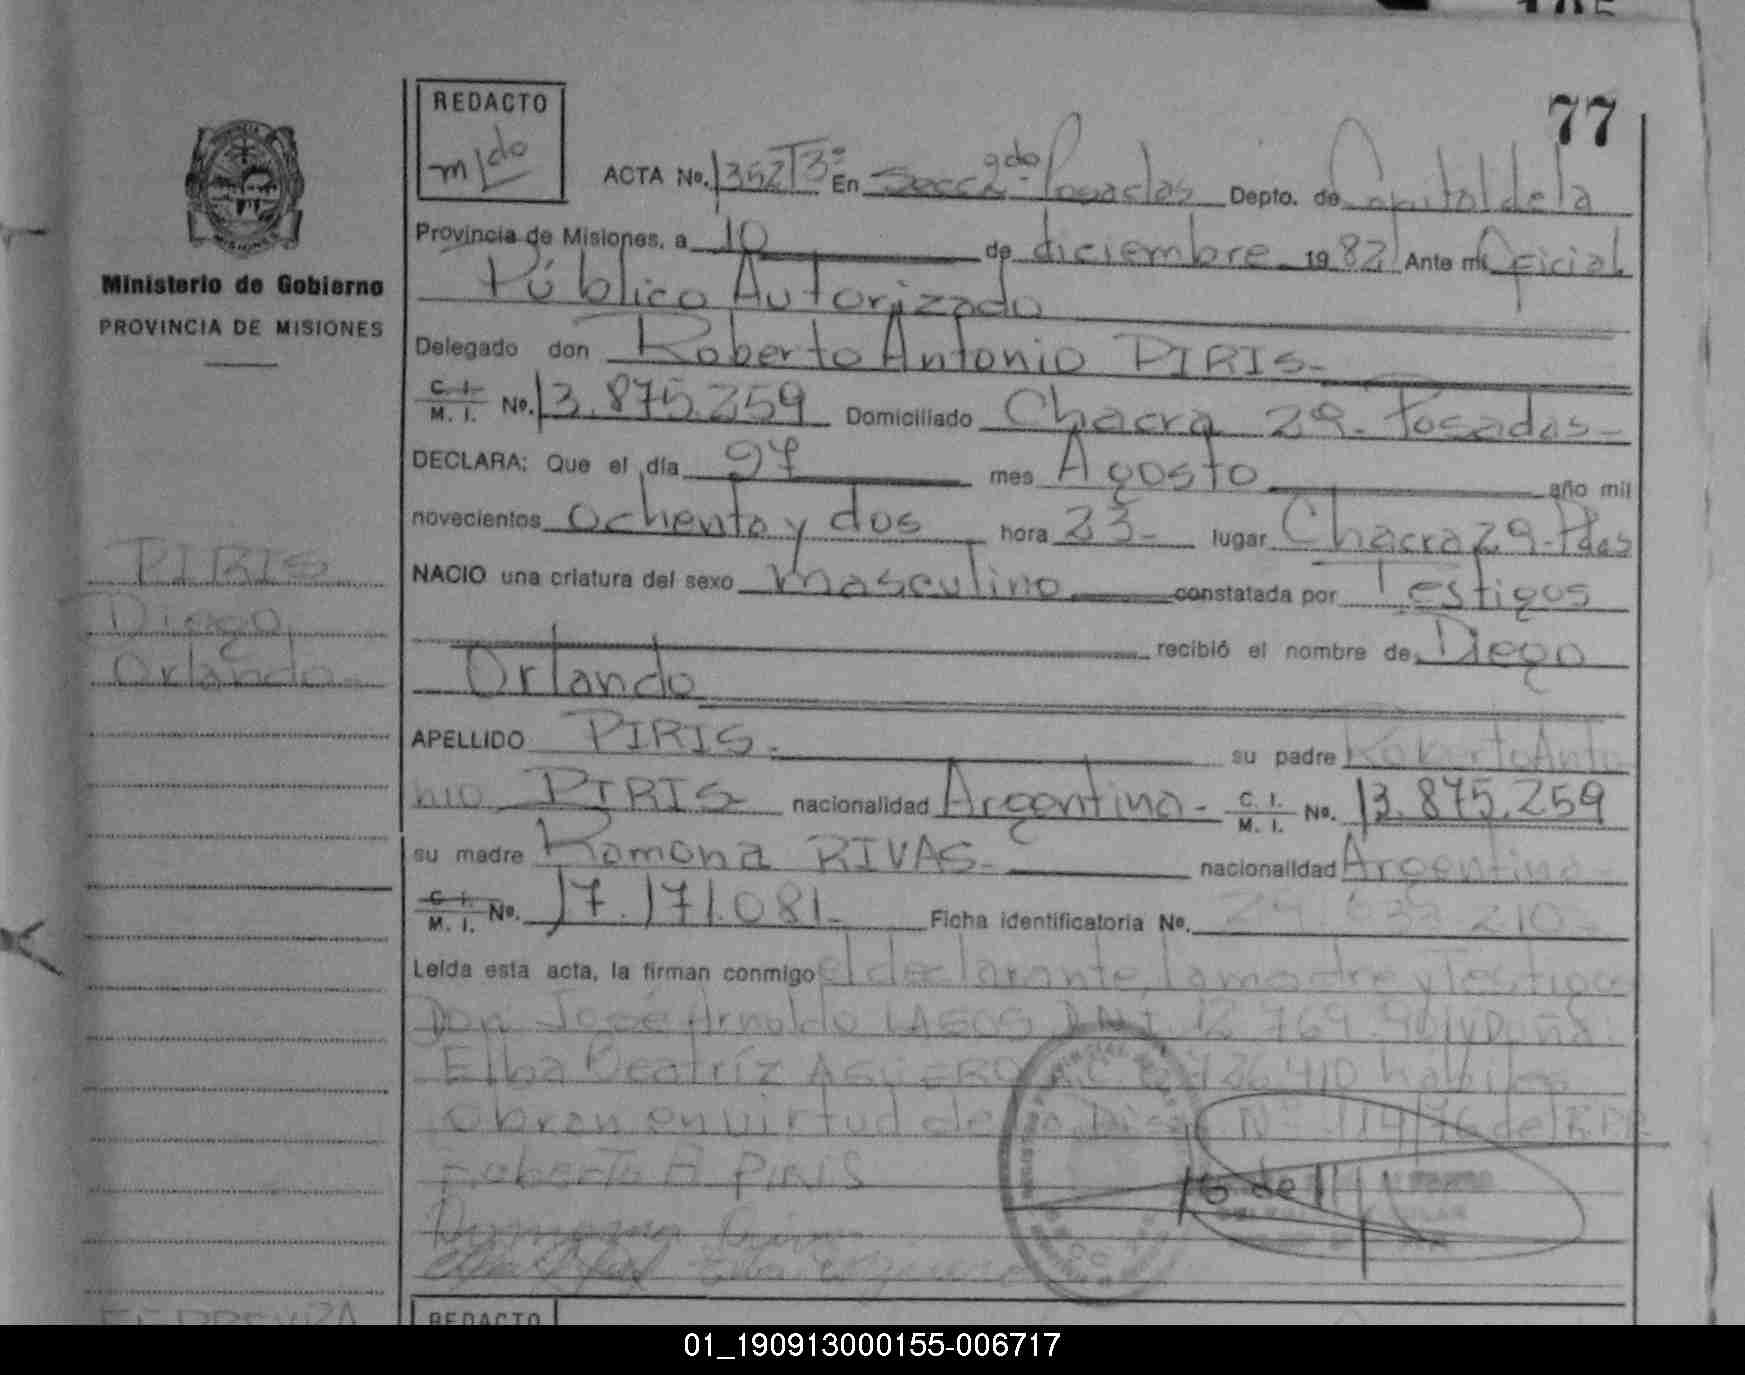 77
REDACTO
m/do
ACTA No. 1352 T3º En Secc 2da. Posadas Depto. de Capital de la
Provincia de Misiones, a 10 de diciembre 1982 Ante mí Oficial
Público Autorizado
Delegado don Roberto Antonio PIRIS-
C. I. M. I. No. 13.875.259 Domiciliado Chacra 29- Posadas-
DECLARA: Que el día mes Agosto año mil
novecientos ochenta y dos hora 23- lugar Chacra 29-Pdas
NACIO una criatura del sexo masculino constatada por Testigos
recibió el nombre de Diego
Orlando
APELLIDO PIRIS- su padre Roberto Anto
nio PIRIS- nacionalidad Argentina- C. I. M. I. No. 13.875.259
su madre Ramona RIVAS- nacionalidad Argentina-
C. I. M. I. No. 17.171.081- Ficha identificatoria No.
Leída esta acta, la firman conmigo el declarante, la madre y Testigos
Don José Arnoldo D.N.I. 12.769. y Doña
Elba Beatríz AGÜERO hábiles
obran en virtud de la Disp. Nº 114/76 del R.P.P.
Roberto A PIRIS
Ministerio de Gobierno
PROVINCIA DE MISIONES
PIRIS
Diego
Orlando-
REDACTO
01_190913000155-006717